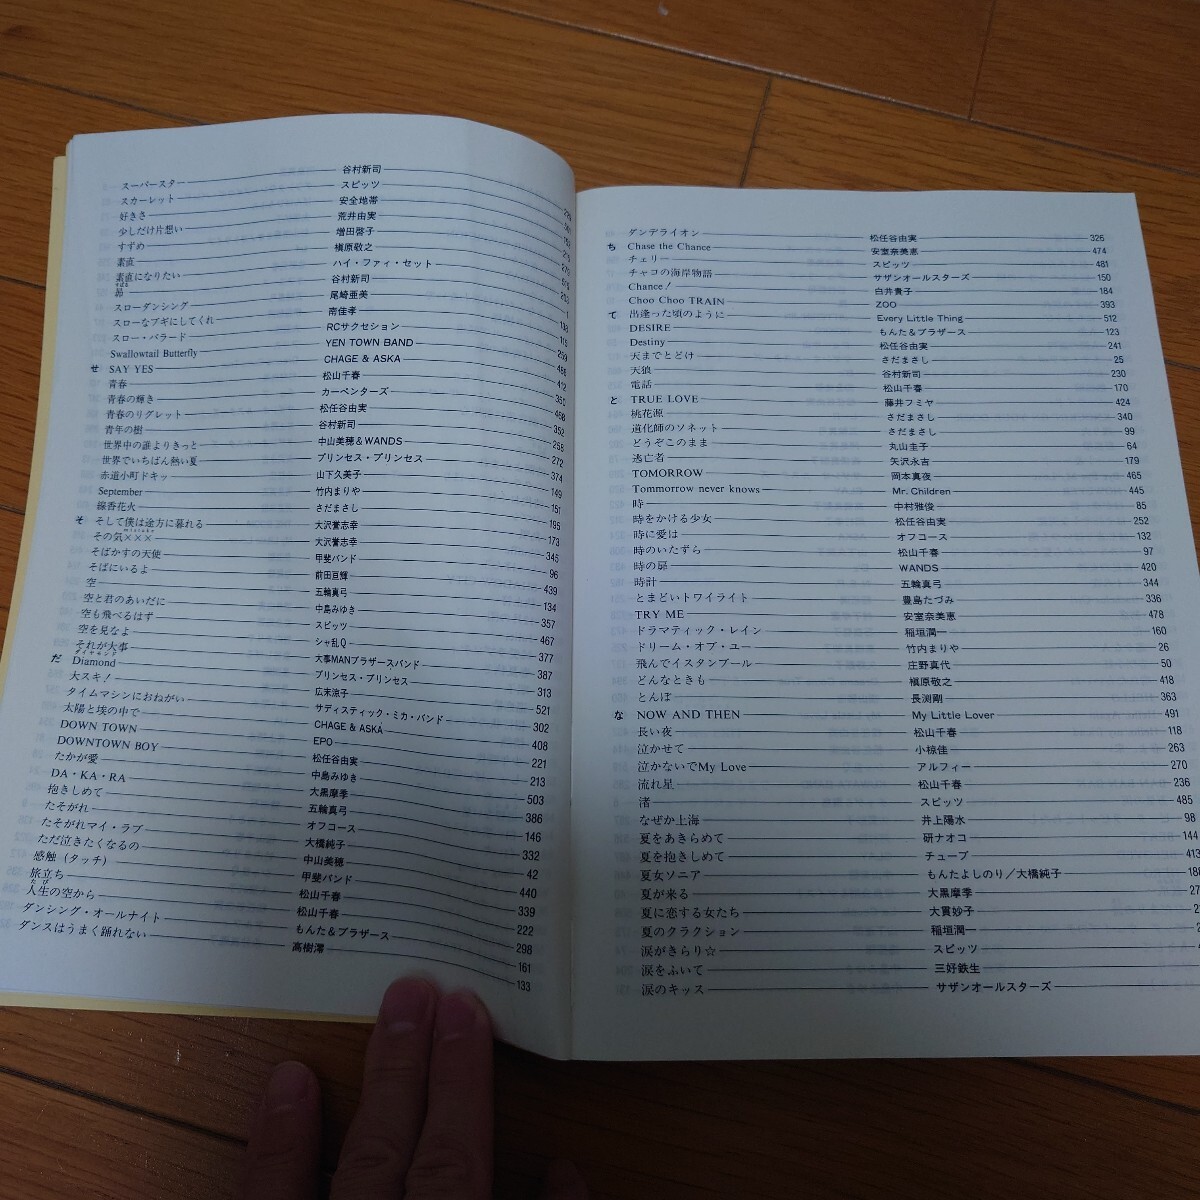 スーパースター 谷村新司
スカーレット スピッツ
好きさ 安全地帯
少しだけ片想い 荒井由実
すずめ 増田啓子
素直 槇原敬之
素直になりたい ハイ・ファイ・セット
昴 谷村新司
スローダンシング 尾崎亜美
スローなブギにしてくれ 南佳孝
スロー・バラード RCサクセション
Swallowtail Butterfly YEN TOWN BAND
せ SAY YES CHAGE & ASKA
青春 松山千春
青春の輝き カーペンターズ
青春のリグレット 松任谷由実
青年の樹 谷村新司
世界中の誰よりきっと 中山美穂&WANDS
世界でいちばん熱い夏 プリンセス・プリンセス
赤道小町ドキッ 山下久美子
September 竹内まりや
線香花火 さだまさし
そ そして僕は途方に暮れる 大沢誉志幸
その気××× 大沢誉志幸
そばかすの天使 甲斐バンド
そばにいるよ 前田亘輝
空 五輪真弓
空と君のあいだに 中島みゆき
空も飛べるはず スピッツ
空を見なよ シャ乱Q
それが大事 大事MANブラザースバンド
だ Diamond プリンセス・プリンセス
大スキ! 広末涼子
タイムマシンにおねがい サディスティック・ミカ・バンド
太陽と埃の中で CHAGE & ASKA
DOWN TOWN EPO
DOWNTOWN BOY 松任谷由実
たかが愛 中島みゆき
DA・KA・RA 大黒摩季
抱きしめて 五輪真弓
たそがれ オフコース
たそがれマイ・ラブ 大橋純子
ただ泣きたくなるの 中山美穂
感触(タッチ) 甲斐バンド
旅立ち 松山千春
人生の空から 松山千春
ダンシング・オールナイト もんた&ブラザース 161
ダンスはうまく踊れない 高樹澪 133
ダンデライオン 松任谷由実 326
ち Chase the Chance 安室奈美恵 474
チェリー スピッツ 481
チャコの海岸物語 サザンオールスターズ 150
Chance! 白井貴子 184
Choo Choo TRAIN ZOO 393
て 出逢った頃のように Every Little Thing 512
DESIRE もんた&ブラザース 123
Destiny 松任谷由実 241
天までとどけ さだまさし 25
天狼 谷村新司 230
電話 松山千春 170
と TRUE LOVE 藤井フミヤ 424
桃花源 さだまさし 340
道化師のソネット さだまさし 99
どうぞこのまま 丸山圭子 64
逃亡者 矢沢永吉 179
TOMORROW 岡本真夜 465
Tommorrow never knows Mr. Children 445
時 中村雅俊 85
時をかける少女 松任谷由実 252
時に愛は オフコース 132
時のいたずら 松山千春 97
時の扉 WANDS 420
時計 五輪真弓 344
とまどいトワイライト 豊島たづみ 336
TRY ME 安室奈美恵 478
ドラマティック・レイン 稲垣潤一 160
ドリーム・オブ・ユー 竹内まりや 26
飛んでイスタンブール 庄野真代 50
どんなときも 槇原敬之 418
とんぼ 長渕剛 363
な NOW AND THEN My Little Lover 491
長い夜 松山千春 118
泣かせて 小椋佳 263
泣かないでMy Love アルフィー 270
流れ星 松山千春 236
渚 スピッツ 485
なぜか上海 井上陽水 98
夏をあきらめて 研ナオコ 144
夏を抱きしめて チューブ 413
夏女ソニア もんたよしのり/大橋純子
夏が来る 大黒摩季
夏に恋する女たち 大貫妙子
夏のクラクション 稲垣潤一
涙がきらり☆ スピッツ
涙をふいて 三好鉄生
涙のキッス サザンオールスターズ